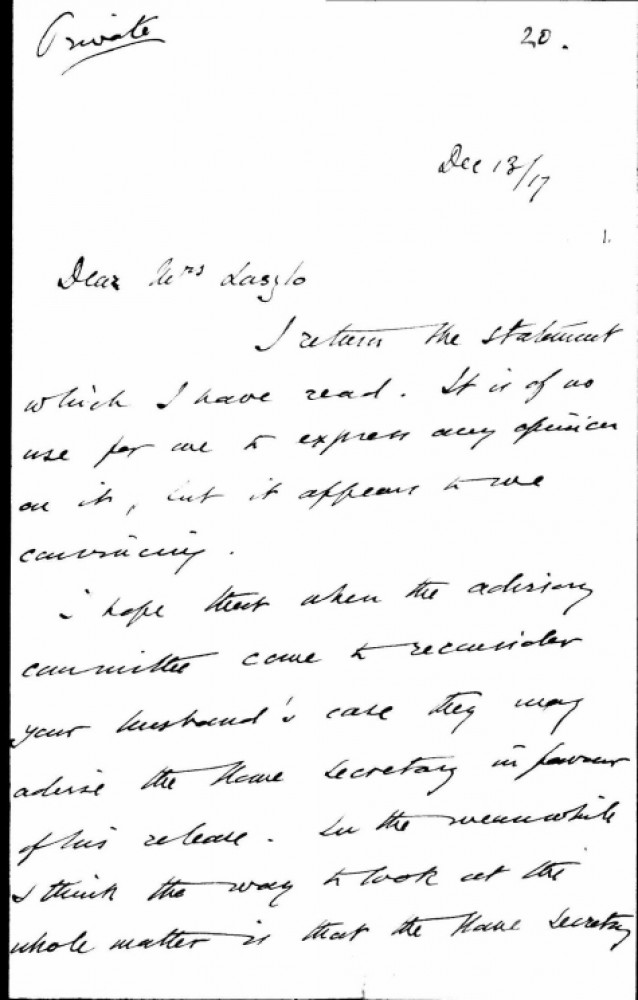 Private
20.
Dec 13/17
1.
Dear Mrs Laszlo
I return the statement
which I have read. It is of no
use for me to express any opinion
on it, but it appears to me
convincing.
I hope that when the advisory
committee come to reconsider
your husband's case they may
advise the Home Secretary in favour
of his release. In the meanwhile
I think the way to look at the
whole matter is that the Home Secretary